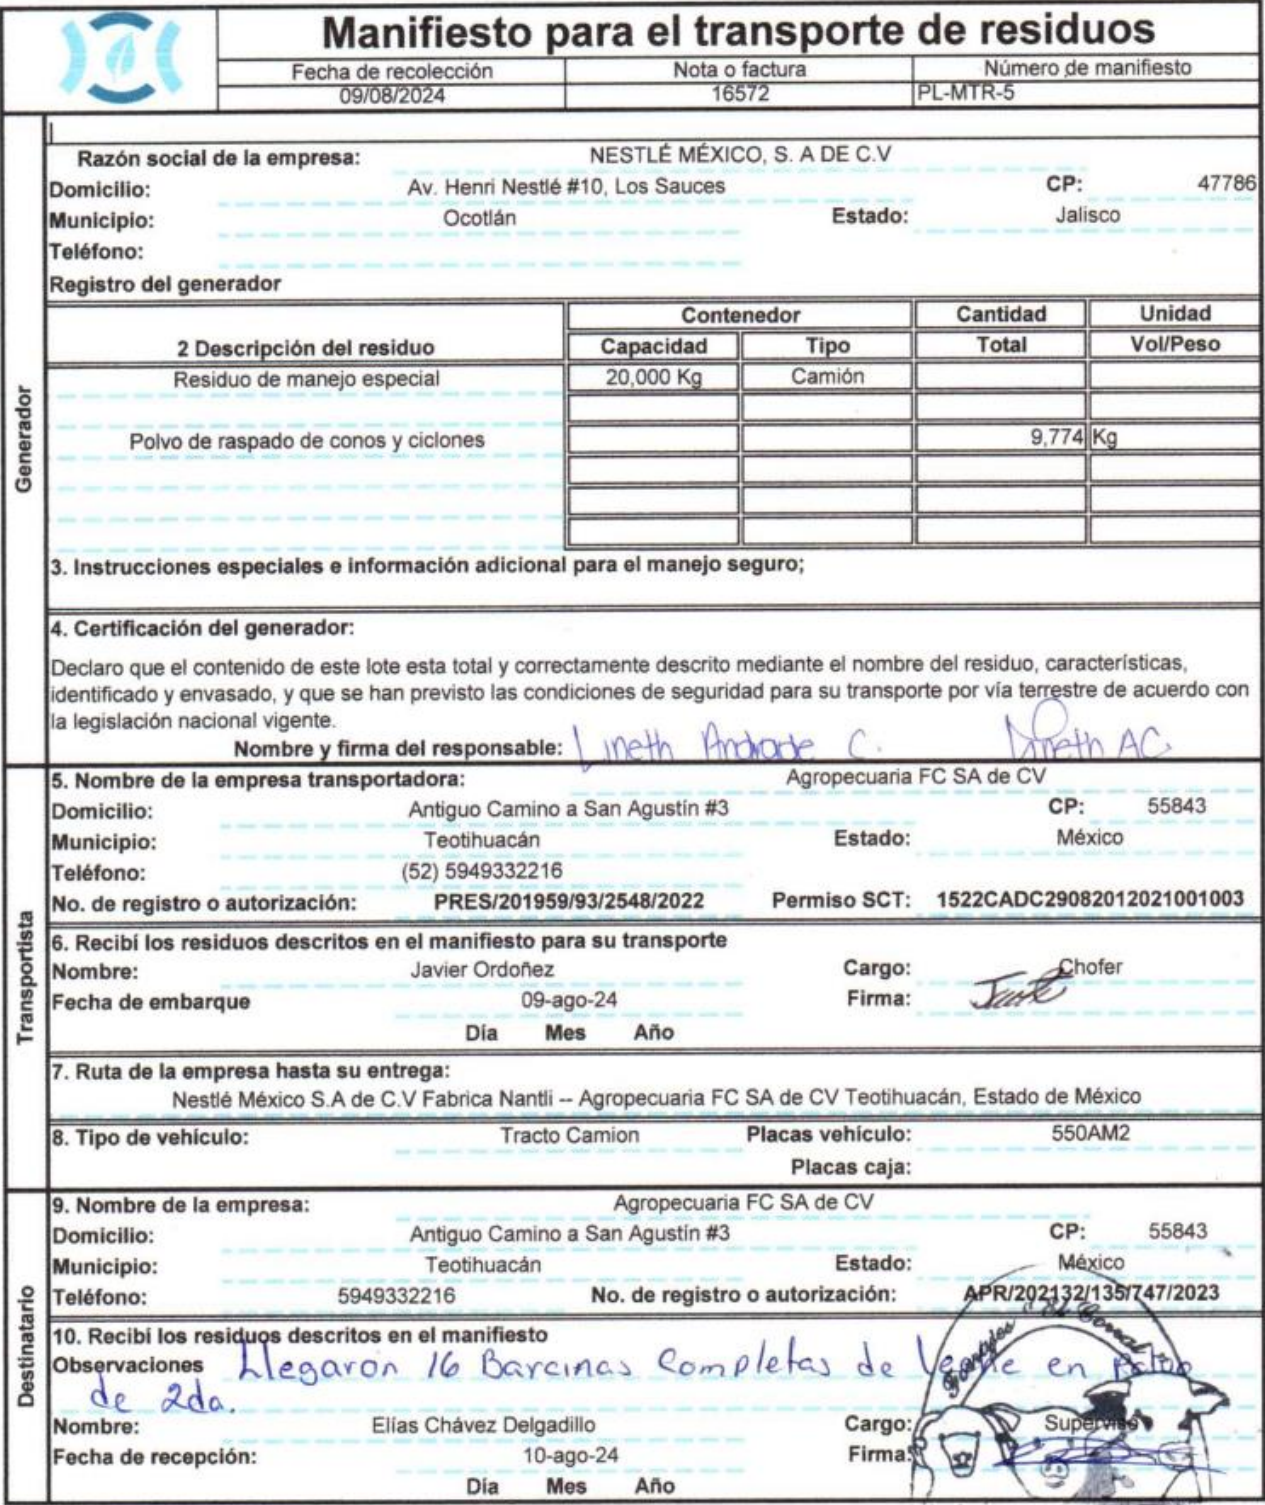 Manifiesto para el transporte de residuos
Fecha de recolección Nota o factura Número de manifiesto
09/08/2024 16572 PL-MTR-5
Generador
Razón social de la empresa: NESTLÉ MÉXICO, S. A DE C.V
Domicilio: Av. Henri Nestlé #10, Los Sauces CP: 47786
Municipio: Ocotlán Estado: Jalisco
Teléfono:
Registro del generador
Contenedor Cantidad Unidad
2 Descripción del residuo Capacidad Tipo Total Vol/Peso
Residuo de manejo especial 20,000 Kg Camión
Polvo de raspado de conos y ciclones 9,774 Kg
3. Instrucciones especiales e información adicional para el manejo seguro;
4. Certificación del generador:
Declaro que el contenido de este lote esta total y correctamente descrito mediante el nombre del residuo, características,
identificado y envasado, y que se han previsto las condiciones de seguridad para su transporte por vía terrestre de acuerdo con
la legislación nacional vigente.
Nombre y firma del responsable: Lineth Andrade C. Lineth AC
Transportista
5. Nombre de la empresa transportadora: Agropecuaria FC SA de CV
Domicilio: Antiguo Camino a San Agustín #3 CP: 55843
Municipio: Teotihuacán Estado: México
Teléfono: (52) 5949332216
No. de registro o autorización: PRES/201959/93/2548/2022 Permiso SCT: 1522CADC29082012021001003
6. Recibí los residuos descritos en el manifiesto para su transporte
Nombre: Javier Ordoñez Cargo: Chofer
Fecha de embarque 09-ago-24 Firma:
Día Mes Año
7. Ruta de la empresa hasta su entrega:
Nestlé México S.A de C.V Fabrica Nantli -- Agropecuaria FC SA de CV Teotihuacán, Estado de México
8. Tipo de vehículo: Tracto Camion Placas vehículo: 550AM2
Placas caja:
Destinatario
9. Nombre de la empresa: Agropecuaria FC SA de CV
Domicilio: Antiguo Camino a San Agustín #3 CP: 55843
Municipio: Teotihuacán Estado: México
Teléfono: 5949332216 No. de registro o autorización: APR/202132/135/747/2023
10. Recibí los residuos descritos en el manifiesto
Observaciones Llegaron 16 Barcinas Completas de leche en Polvo
de 2da.
Nombre: Elías Chávez Delgadillo Cargo: Superviso
Fecha de recepción: 10-ago-24 Firma:
Día Mes Año
El Corral